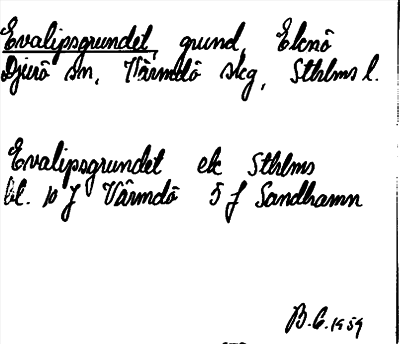 Evalipsgrundet, grund, Eknö
Djurö sn, Värmdö skg, Sthlms l.
Evalipsgrundet ek Sthlms
bl. 10 J Värmdö 5 f Sandhamn
B.G. 1959